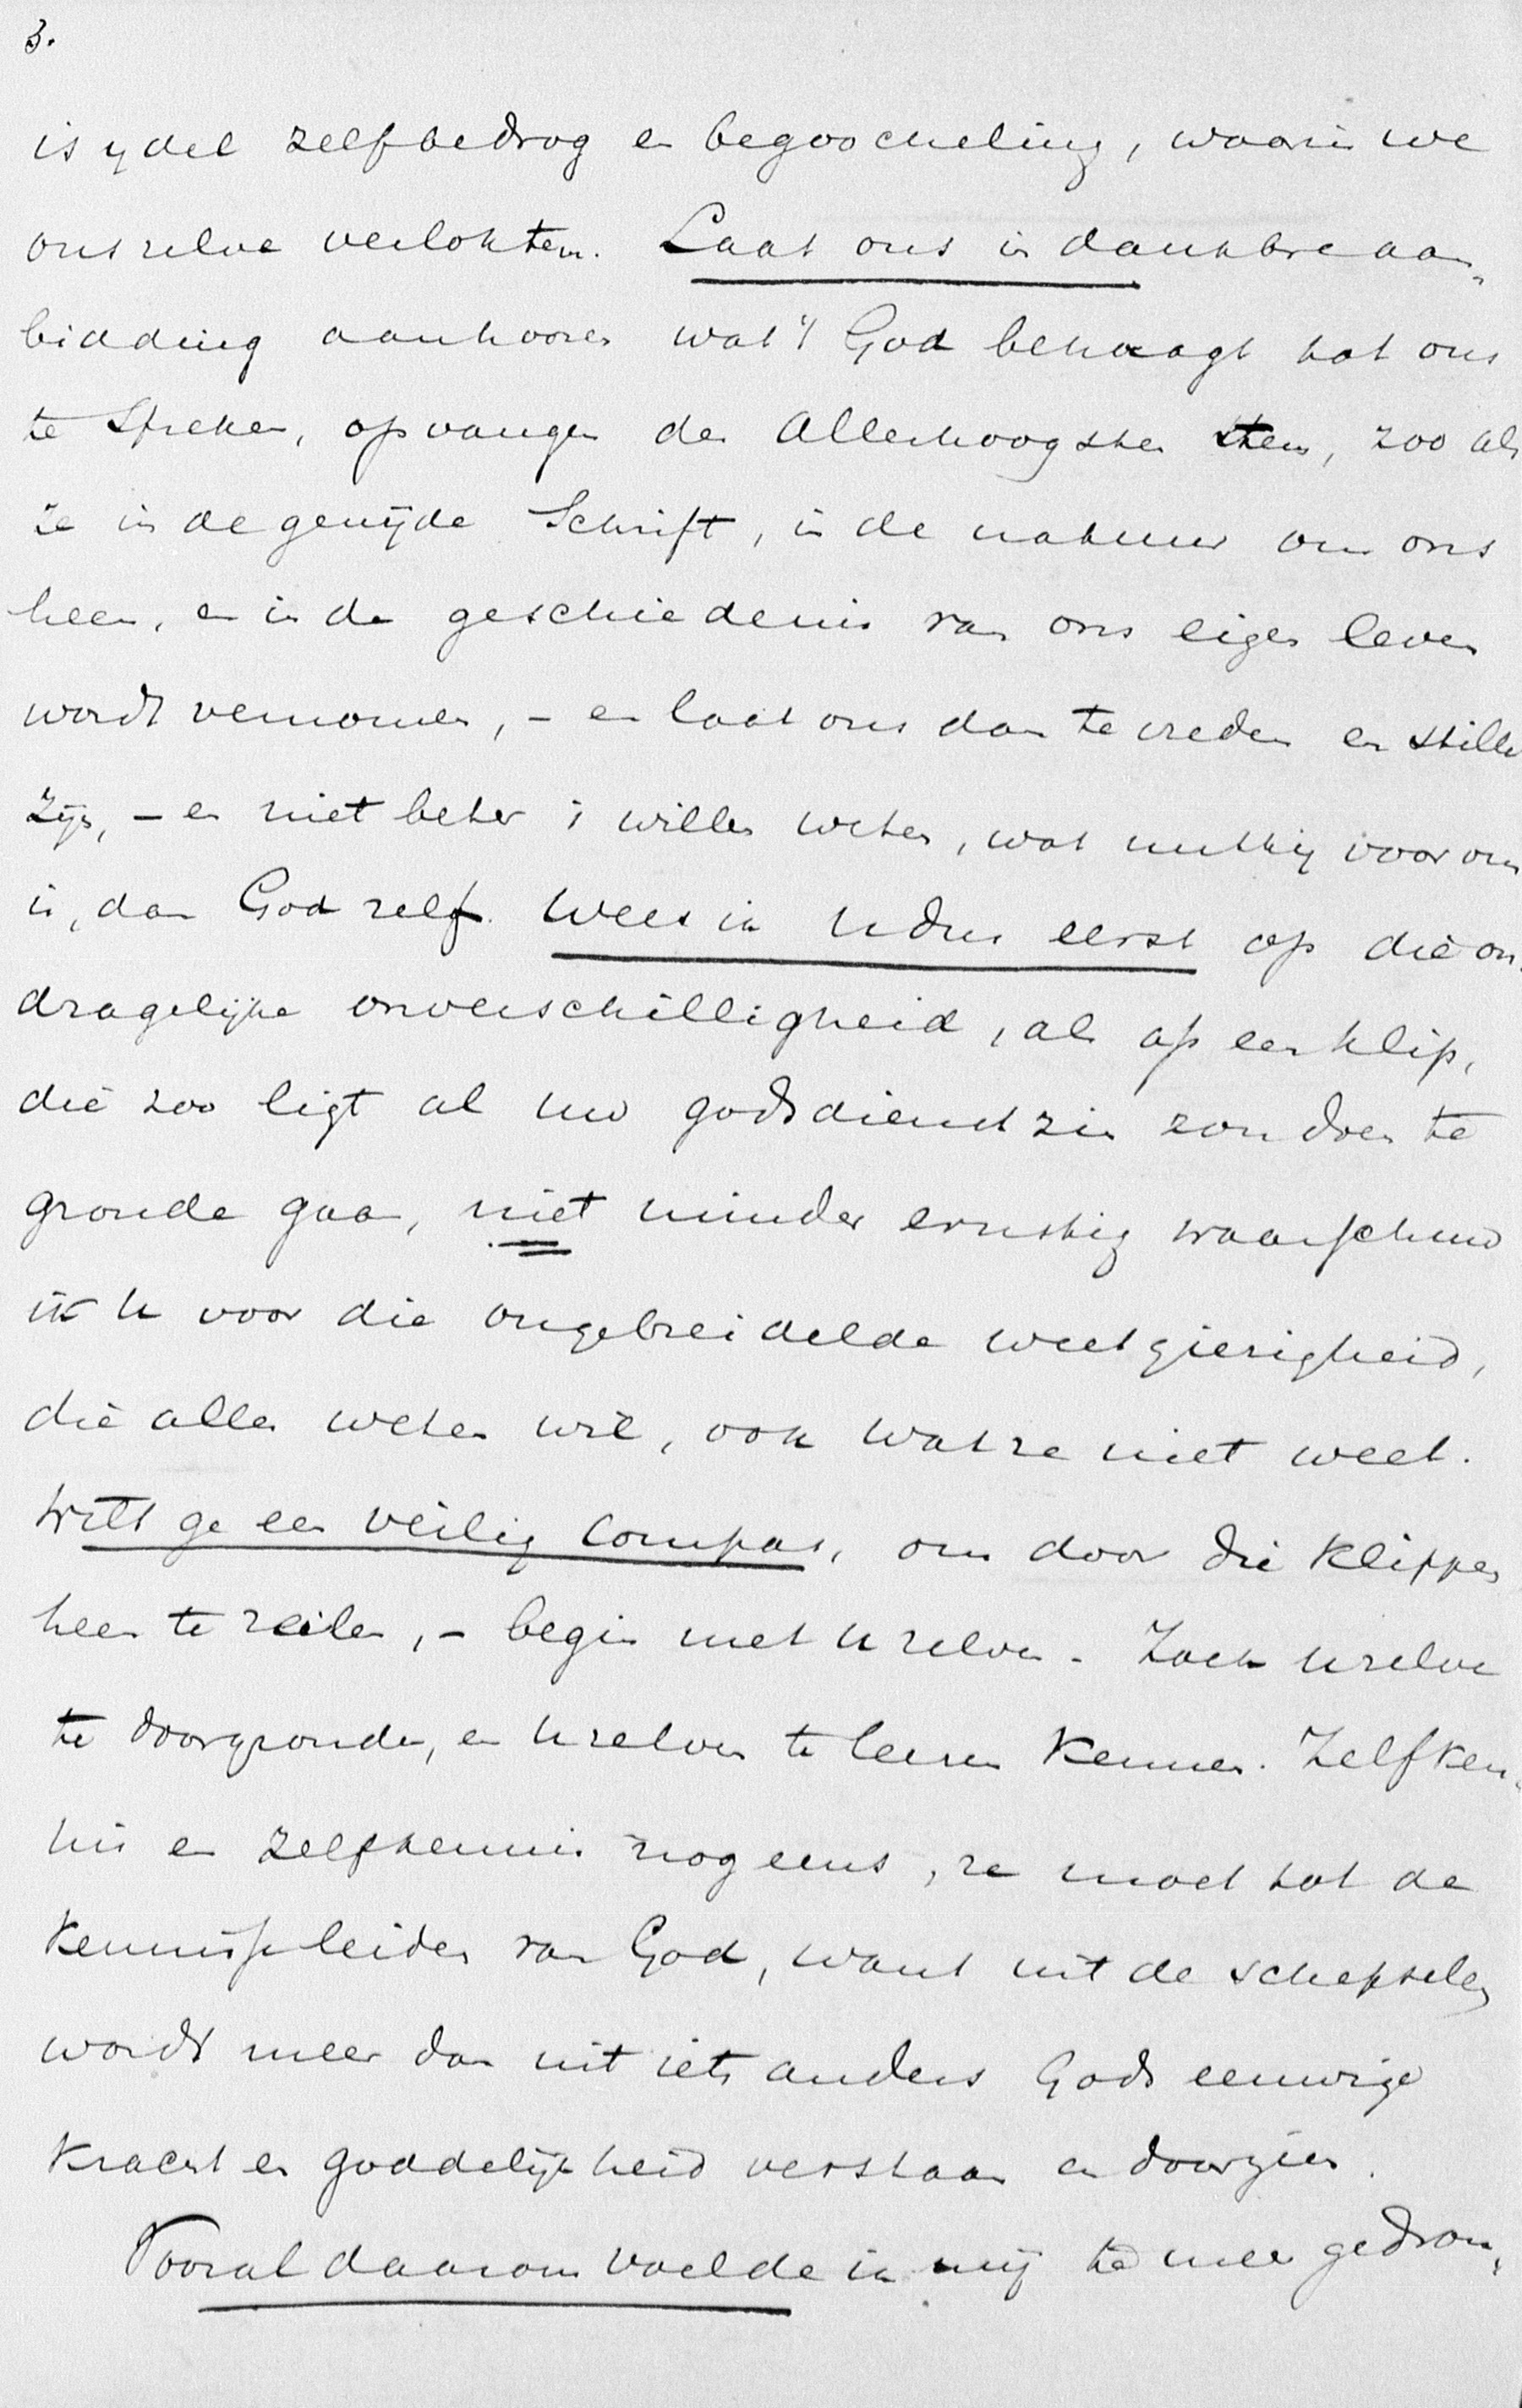 3.
is ydel zelfbedrog en begoocheling, waarin we
ons zelve verlokten. Laat ons in dankbre aan„
bidding aanhooren wat 't God behaagt tot ons
te spreken, opvangen des Allerhoogsten stem, zoo als
ze in de gewijde Schrift, in de natuur om ons
heen, en in de geschiedenis van ons eigen leven
wordt vernomen, – en laat ons dan te vreden en stille
zijn, – en niet beter i willen weten, wat nuttig voor ons
is, dan God zelf. Wees ik u dus eerst op die on„
dragelijke onverschilligheid, als op een klip,
die zoo ligt al uw godsdienstzin zou doen te
gronde gaan, niet minder ernstig waarschuw
ik U voor die ongebreidelde weetgierigheid,
die alles weten wil, ook wat ze niet weet.
Wilt ge een veilig compas, om door die klippen
heen te zeilen, – begin met U zelven. Zoek U zelve
te doorgronden, en U zelven te leeren kennen. Zelfken„
nis en zelfkennis nog eens, ze moet tot de
kennisse leiden van God, want uit de schepselen
wordt meer dan uit iets anders Gods eeuwige
kracht en goddelijkheid verstaan en doorzien.
Vooral daarom voelde ik mij te meer gedron„